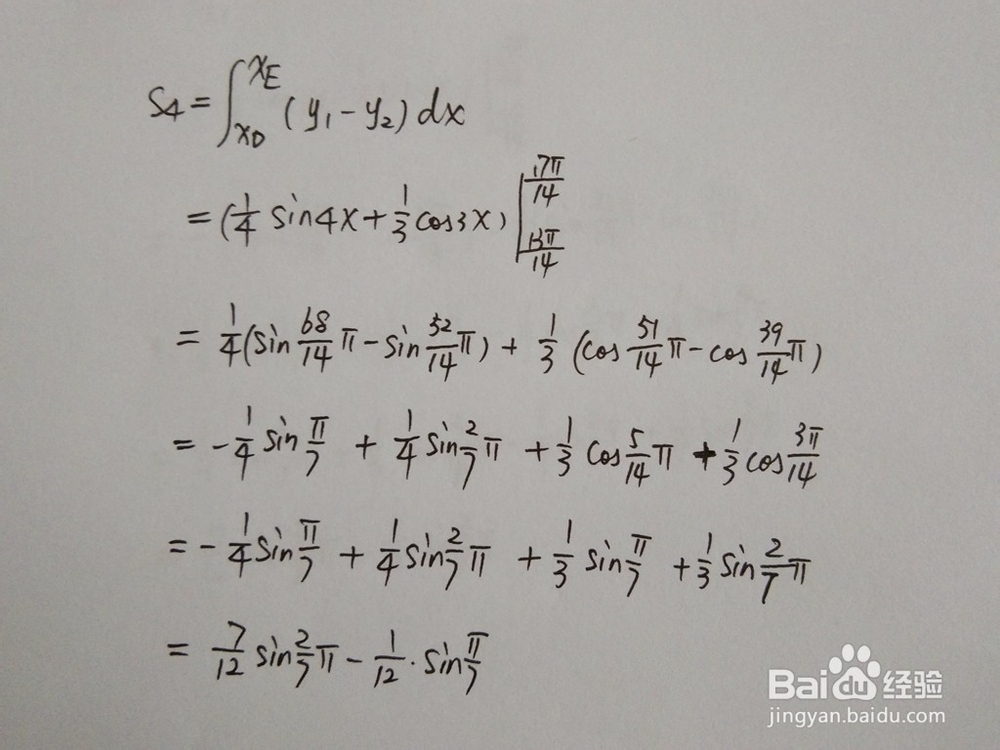 S4 = ∫_{xD}^{xE} (y₁ - y₂) dx
= (1/4 sin4x + 1/3 cos3x) |_{13π/14}^{17π/14}
= 1/4 (sin 68/14 π - sin 52/14 π) + 1/3 (cos 51/14 π - cos 39/14 π)
= - 1/4 sin π/7 + 1/4 sin 2/7 π + 1/3 cos 5/14 π + 1/3 cos 3π/14
= - 1/4 sin π/7 + 1/4 sin 2/7 π + 1/3 sin π/7 + 1/3 sin 2/7 π
= 7/12 sin 2/7 π - 1/12 · sin π/7
Baidu 经验
jingyan.baidu.com